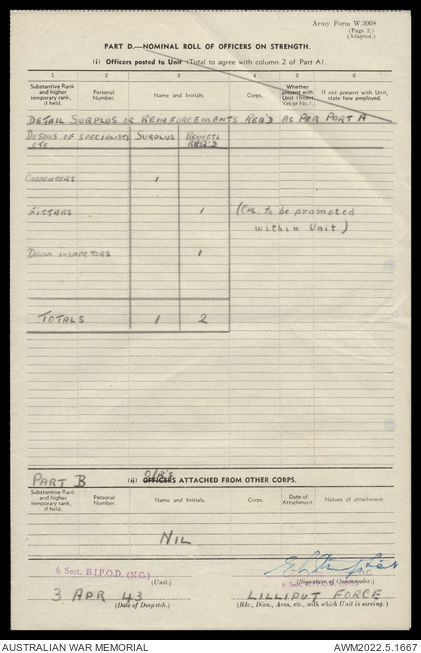 Army Form W.3008
(Page 2.)
(Adapted.)
PART D.—NOMINAL ROLL OF OFFICERS ON STRENGTH.
(i) Officers posted to Unit (Total to agree with column 2 of Part A).
1 2 3 4 5 6
Substantive Rank and higher temporary rank, if held. Personal Number. Name and Initials. Corps. Whether present with Unit (Insert Yes or No). If not present with Unit, state how employed.
DETAIL SURPLUS OR REINFORCEMENTS REQ'D AS PER PART A
DETAILS OF SPECIALISTS ETC SURPLUS REINFTS REQ'D
CARPENTERS 1
FITTERS 1 (Cpl. to be promoted
within Unit)
DRUM INSPECTORS 1
TOTALS 1 2
PART B (ii) OFFICERS O/R's ATTACHED FROM OTHER CORPS.
Substantive Rank and higher temporary rank, if held. Personal Number. Name and Initials. Corps. Date of Attachment. Nature of attachment.
NIL
6 Sect. B.I.P.O.D. (N.G.)
(Unit.)
(Signature of Commander.)
3 APR 43
(Date of Despatch.)
LILLIPUT FORCE
(Bde., Divn., Area, etc., with which Unit is serving.)
AUSTRALIAN WAR MEMORIAL
AWM2022.5.1667